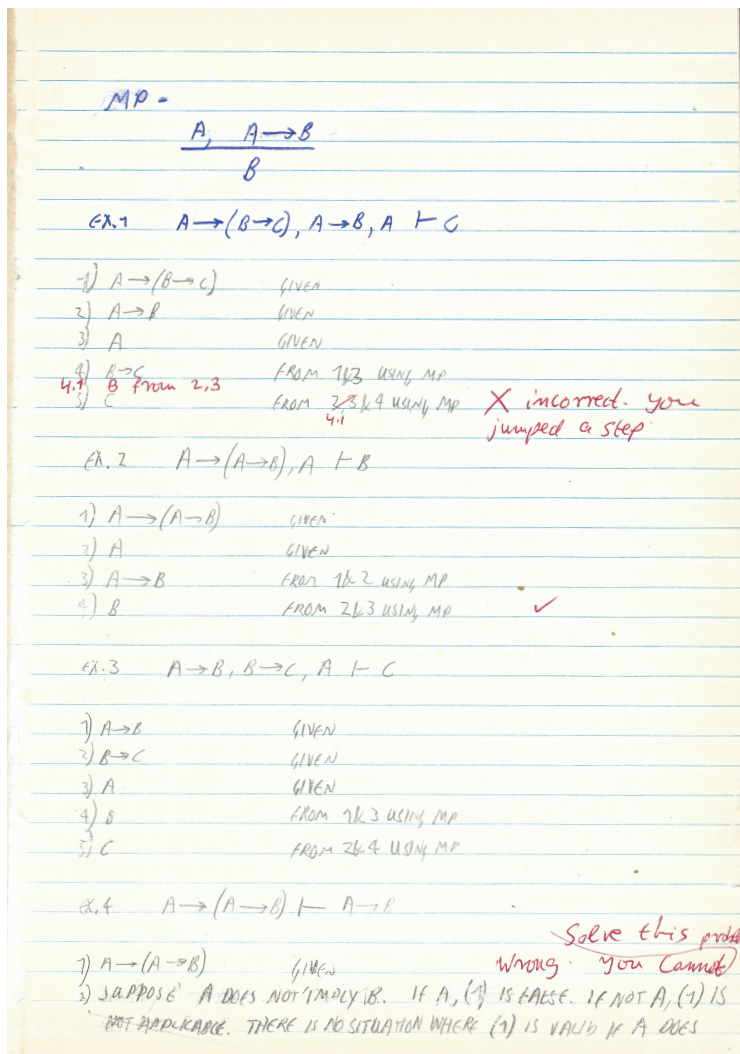 MP -
A, A→B
B
EX.1 A→(B→C), A→B, A ⊢ C
1) A→(B→C) GIVEN
2) A→B GIVEN
3) A GIVEN
4) B→C FROM 1&3 USING MP
4.1 B from 2,3
5) C FROM 2,3&4 USING MP X incorrect. you
4.1 jumped a step
EX.2 A→(A→B), A ⊢ B
1) A→(A→B) GIVEN
2) A GIVEN
3) A→B FROM 1&2 USING MP
4) B FROM 2&3 USING MP ✓
EX.3 A→B, B→C, A ⊢ C
1) A→B GIVEN
2) B→C GIVEN
3) A GIVEN
4) B FROM 1&3 USING MP
5) C FROM 2&4 USING MP
EX.4 A→(A→B) ⊢ A→B
Solve this
1) A→(A→B) GIVEN Wrong. you Cannot
2) SUPPOSE A DOES NOT IMPLY B. IF A, (1) IS FALSE. IF NOT A, (1) IS
NOT APPLICABLE. THERE IS NO SITUATION WHERE (1) IS VALID IF A DOES